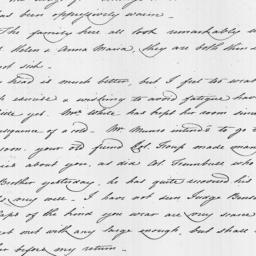 has been oppressively warm. —
The family here all look remarkably w
t Helen & Anna Maria, they are both thin a
not sick. —
head is much better, but I feel too weak
exercise & walking to avoid fatigue have
tite yet. Mrs. White has kept her room since
consequence of a cold. Mr Munro intends to go t
soon, your old friend Col. Troup made man
ries about you, as did Col. Trumbull who
Brother yesterday, he has quite recovered his
is very well. I have not seen Judge Benso
Caps of the kind you wear are very scarce
et met with any large enough, but shall
her before my return.